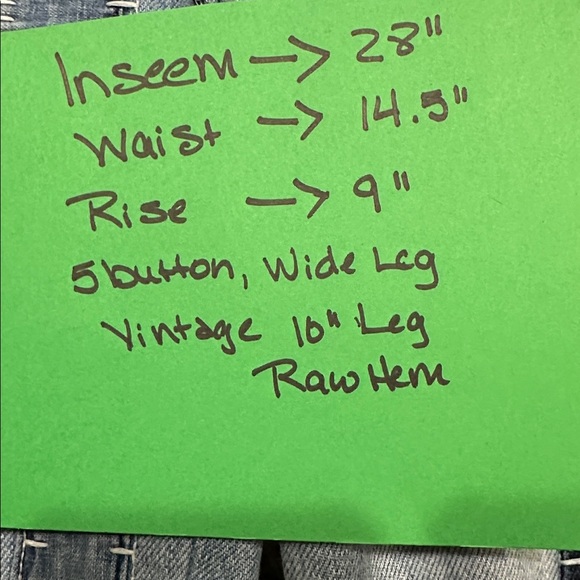 Inseem → 28"
Waist → 14.5"
Rise → 9"
5 button, Wide Leg
Vintage 10" Leg
Raw Hem